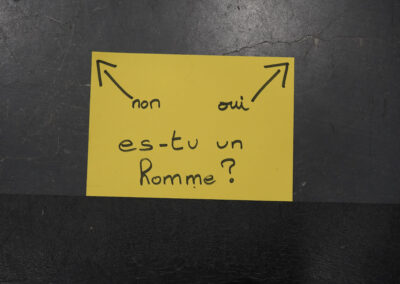 non oui
es-tu un
homme ?